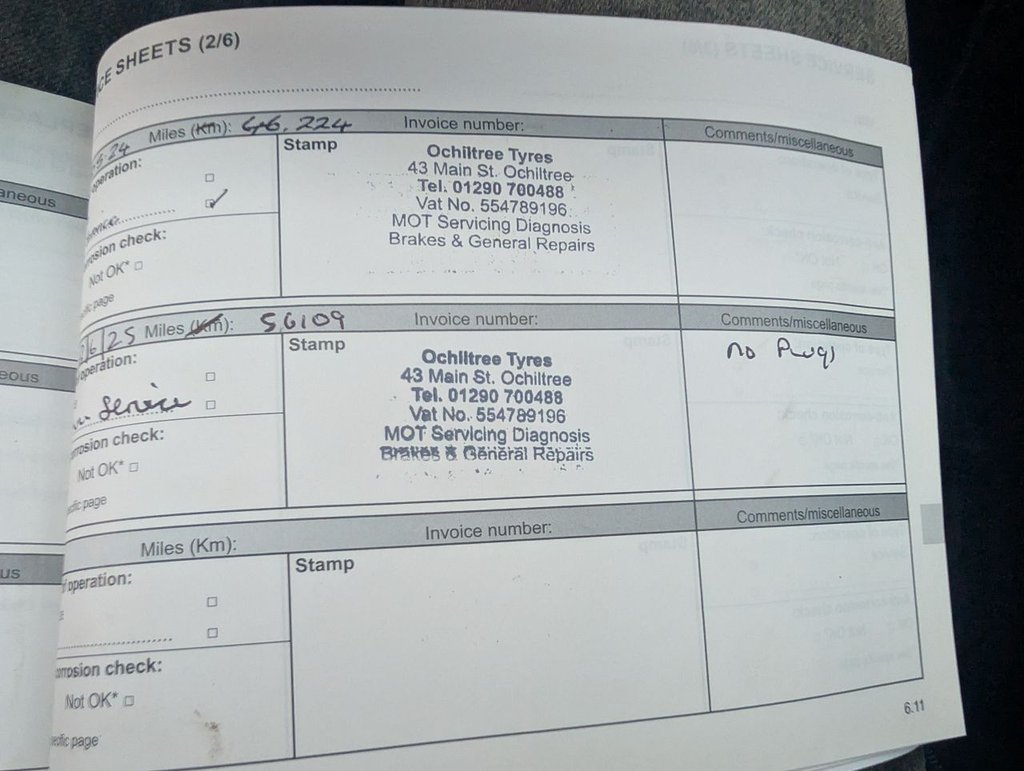 CE SHEETS (2/6)
5.24 Miles (Km): 46,224 Invoice number: Comments/miscellaneous
eration:
Stamp
Ochiltree Tyres
43 Main St. Ochiltree
Tel. 01290 700488
Vat No. 554789196
MOT Servicing Diagnosis
Brakes & General Repairs
rosion check:
Not OK*
ific page
6/25 Miles (Km): 56109 Invoice number: Comments/miscellaneous
operation:
Stamp
Service
no Plugs
Ochiltree Tyres
43 Main St. Ochiltree
Tel. 01290 700488
Vat No. 554789196
MOT Servicing Diagnosis
Brakes & General Repairs
rrosion check:
Not OK*
ecific page
Miles (Km): Invoice number: Comments/miscellaneous
f operation:
Stamp
orrosion check:
Not OK*
ecific page
6.11
aneous
eous
us